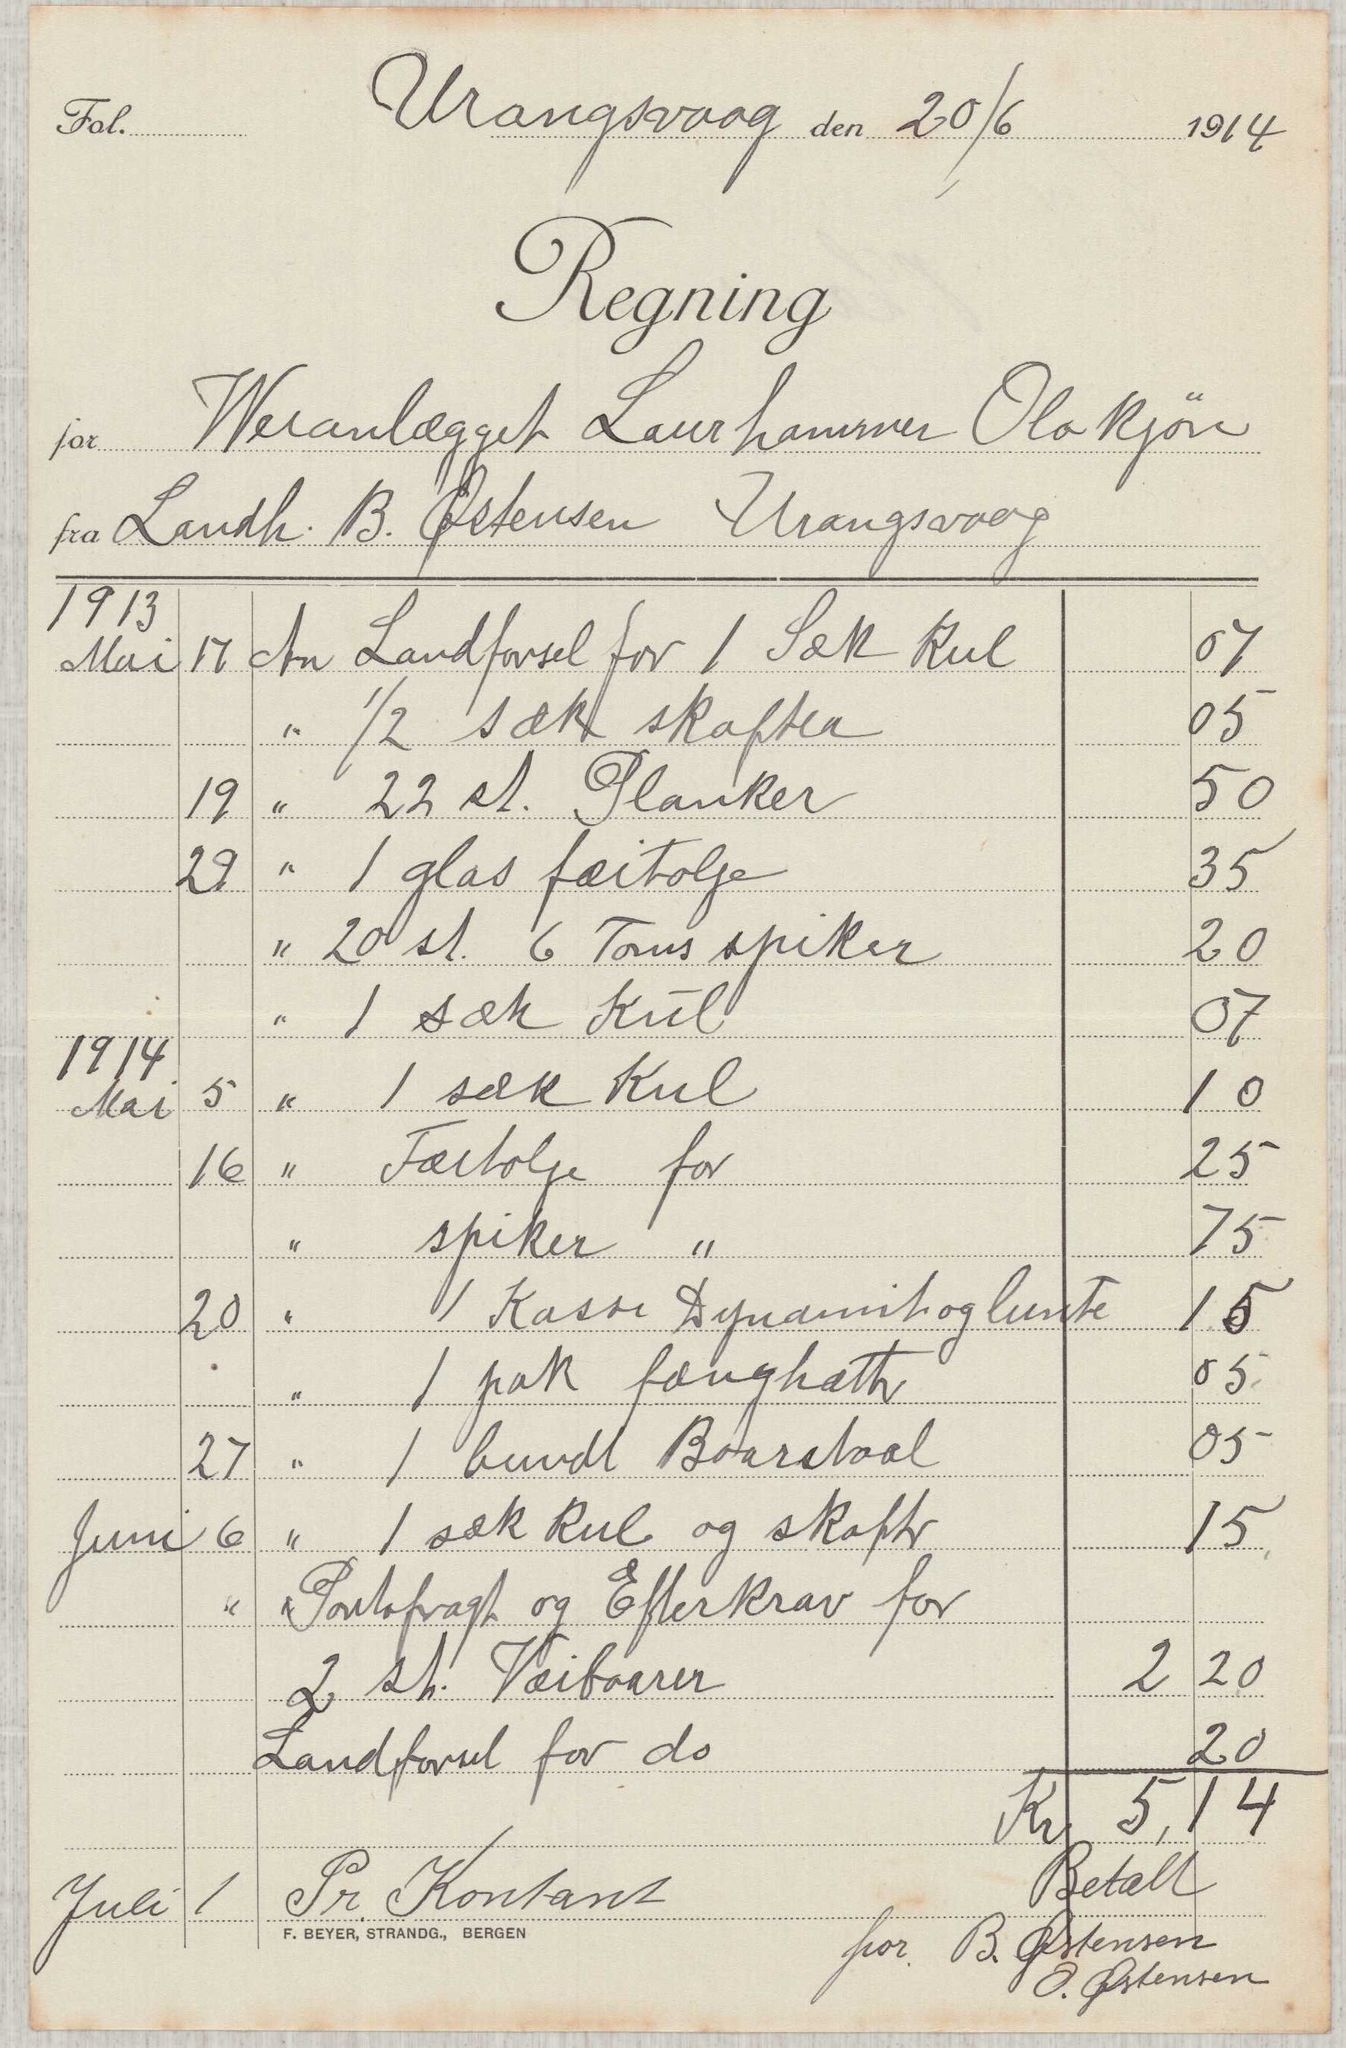 Fol. Urangsvaag den 20/6 1914
Regning
for Weranlægget Laurhammer Olakjøn
fra Landh. B. Østensen Urangsvaag
1913
Mai 17 An Landforsel for 1 Sæk Kul 07
" 1/2 sæk skafter 05
19 " 22 st. Planker 50
29 " 1 glas fæitolge 35
" 20 st. 6 Toms spiker 20
" 1 sæk Kul 07
1914
Mai 5 " 1 sæk Kul 10
16 " Fæitolge for 25
" spiker " 75
20 " 1 Kasse Dynamit og lunte 15
" 1 pak fænghætter 05
27 " 1 bundt Baarstaal 05
Juni 6 " 1 sæk kul og skafter 15
" " Portofragt og Efterkrav for
2 st. Væibaarer 2 20
Landforsel for do 20
Kr 5,14
Juli 1 Pr. Kontant Betalt
F. BEYER, STRANDG., BERGEN
for B. Østensen
O. Østensen